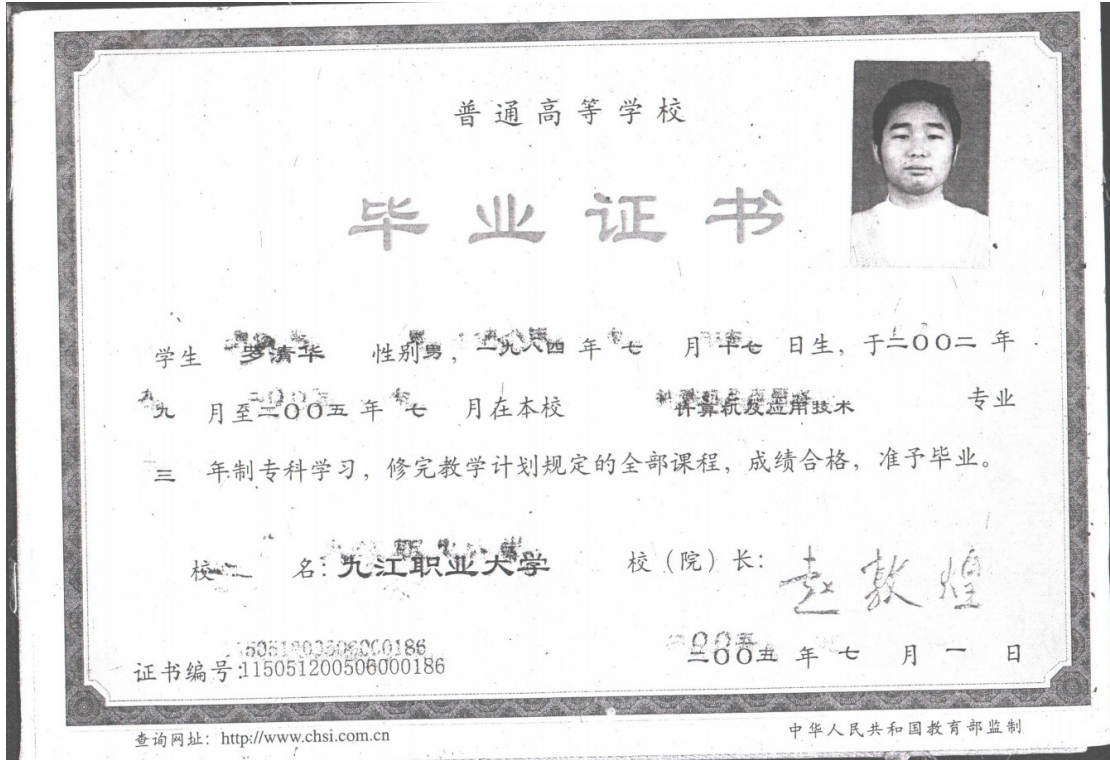 普通高等学校
毕业证书
学生 罗清华 性别男，一九八四年七月十七日生，于二〇〇二年
九月至二〇〇五年七月在本校 计算机及应用技术 专业
三年制专科学习，修完教学计划规定的全部课程，成绩合格，准予毕业。
校 名：九江职业大学 校（院）长：赵敦煌
证书编号：115051200506000186 二〇〇五年七月一日
查询网址：http://www.chsi.com.cn 中华人民共和国教育部监制